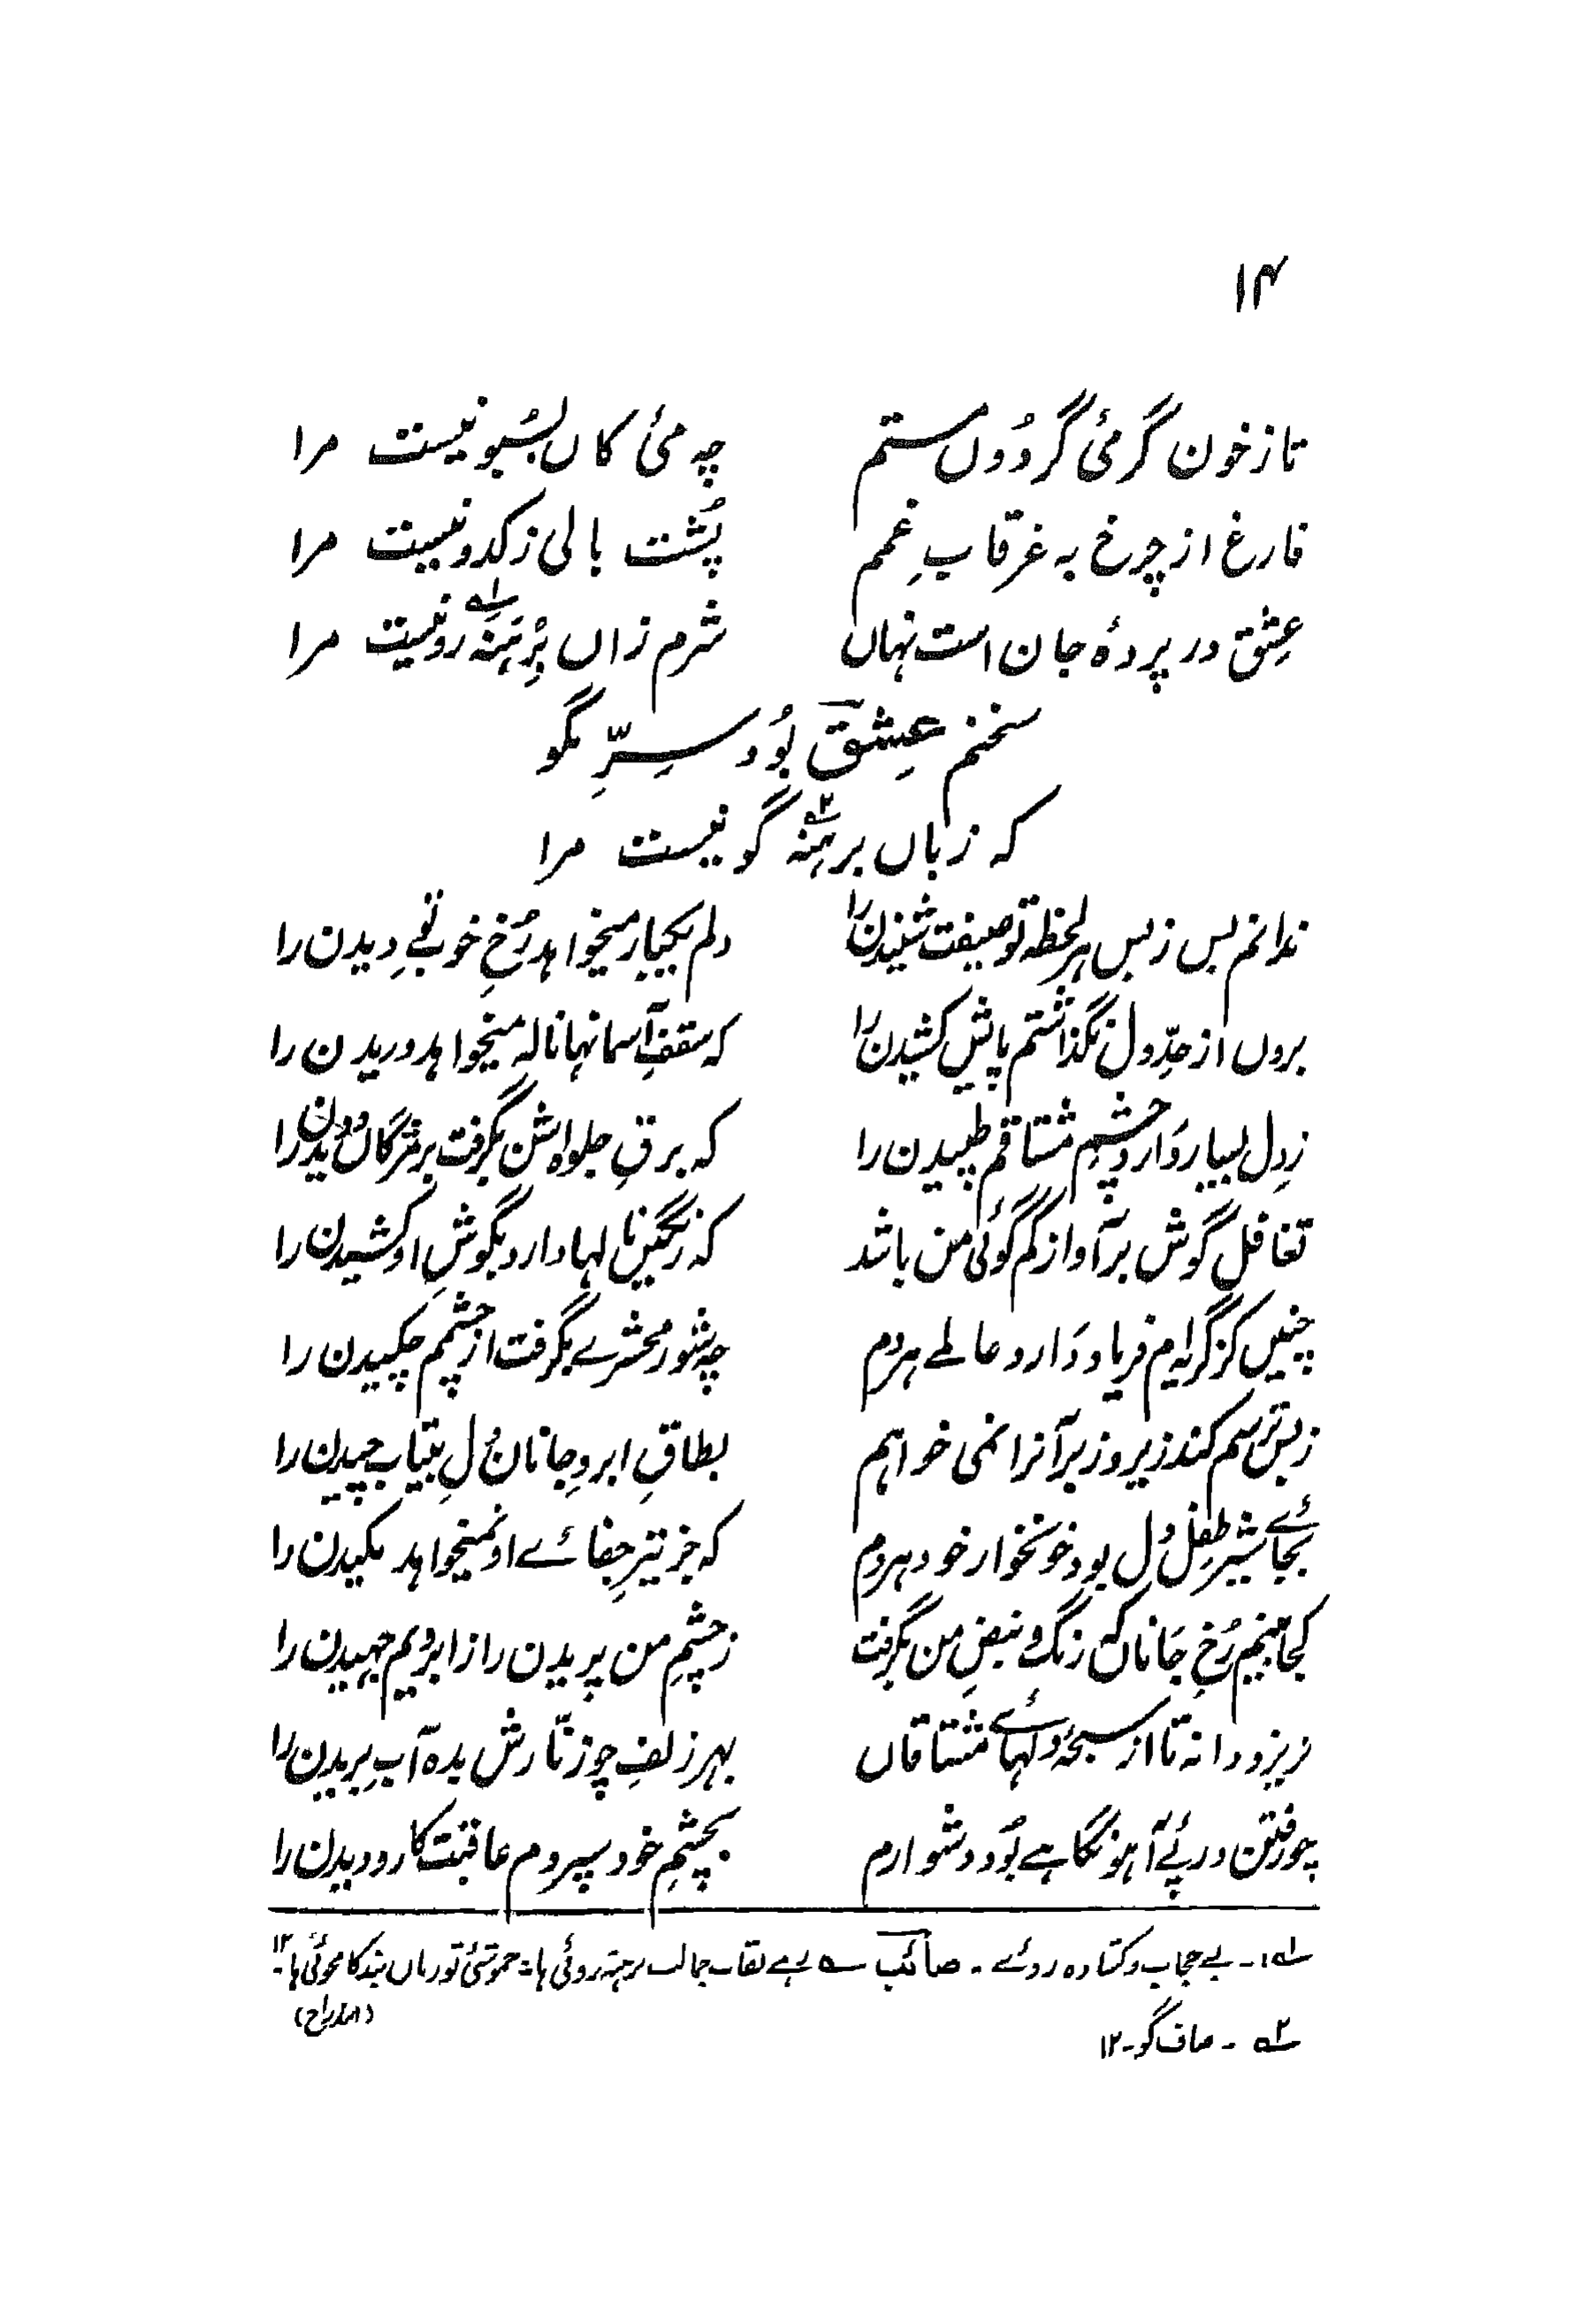 ۱۴
تا ز خون گرمئ گر دُول مستم چہ مئ کاں بسُبو نیست مرا
فارغ از چرخ بہ غرقابِ غمم پُشت بالی ز کدو نیست مرا
عِشق در پردۂ جان است نہاں شرم زاں بِرْہَنَہ رو نیست مرا
سخنم عِشق بُود سِرِّ مگو
کہ زباں برہنہ گو نیست مرا
ندانم بس ز بس ہر لحظہ توصیفت شنیدن را دلم یکبار میخواہد رُخِ خوبِ تو دیدن را
بروں از حدِّ دل نگذاشتم پایش کشیدن را کہ سقفِ آسمانہا نالہ میخواہد دریدن را
زِدل بسیار دَارد چشم مشتاقم طپیدن را کہ برقِ جلوہ اش بگرفت بر مژگاں دویدن را
تغافل گوش بر آواز گم گوئی من باشد کہ رنگیں نالہا دارد بگوشِ او کشیدن را
چنیں کز گریہ ام فریاد دَارد عالمے ہردم چہ شور محشرے بگرفت از چشمم چکیدن را
ز بس ترسم کند زیر و زبر آنرا نمی خواہم بطاقِ ابروِ جاناں دُلِ بیتاب چیدن را
بجائے شیر طفلِ دل بود خونخوار خود ہردم کہ جز تیرِ جفائے او نمیخواہد مکیدن را
کجا بینم رُخِ جَاناں کہ رنگ و نبضِ من بگرفت ز چشمِ من پریدن را ز ابرویم جہیدن را
بریزد دانہ تا از سبحۂ دلہائے مشتاقاں بہر زلفِ چو زنّارش بدہ آبِ بریدن را
چو رفتن در پئے آہو نگاہے بُود دشوارم بچشمِ خود سپردم عاقبت کار دویدن را
۱؎ ۔ بے حجاب و کشادہ روئے ۔ صائب ؎ بہے نقاب جمالت برہنہ روئی ہا
۲؎ ۔ صاف گو ۔ ۱۲